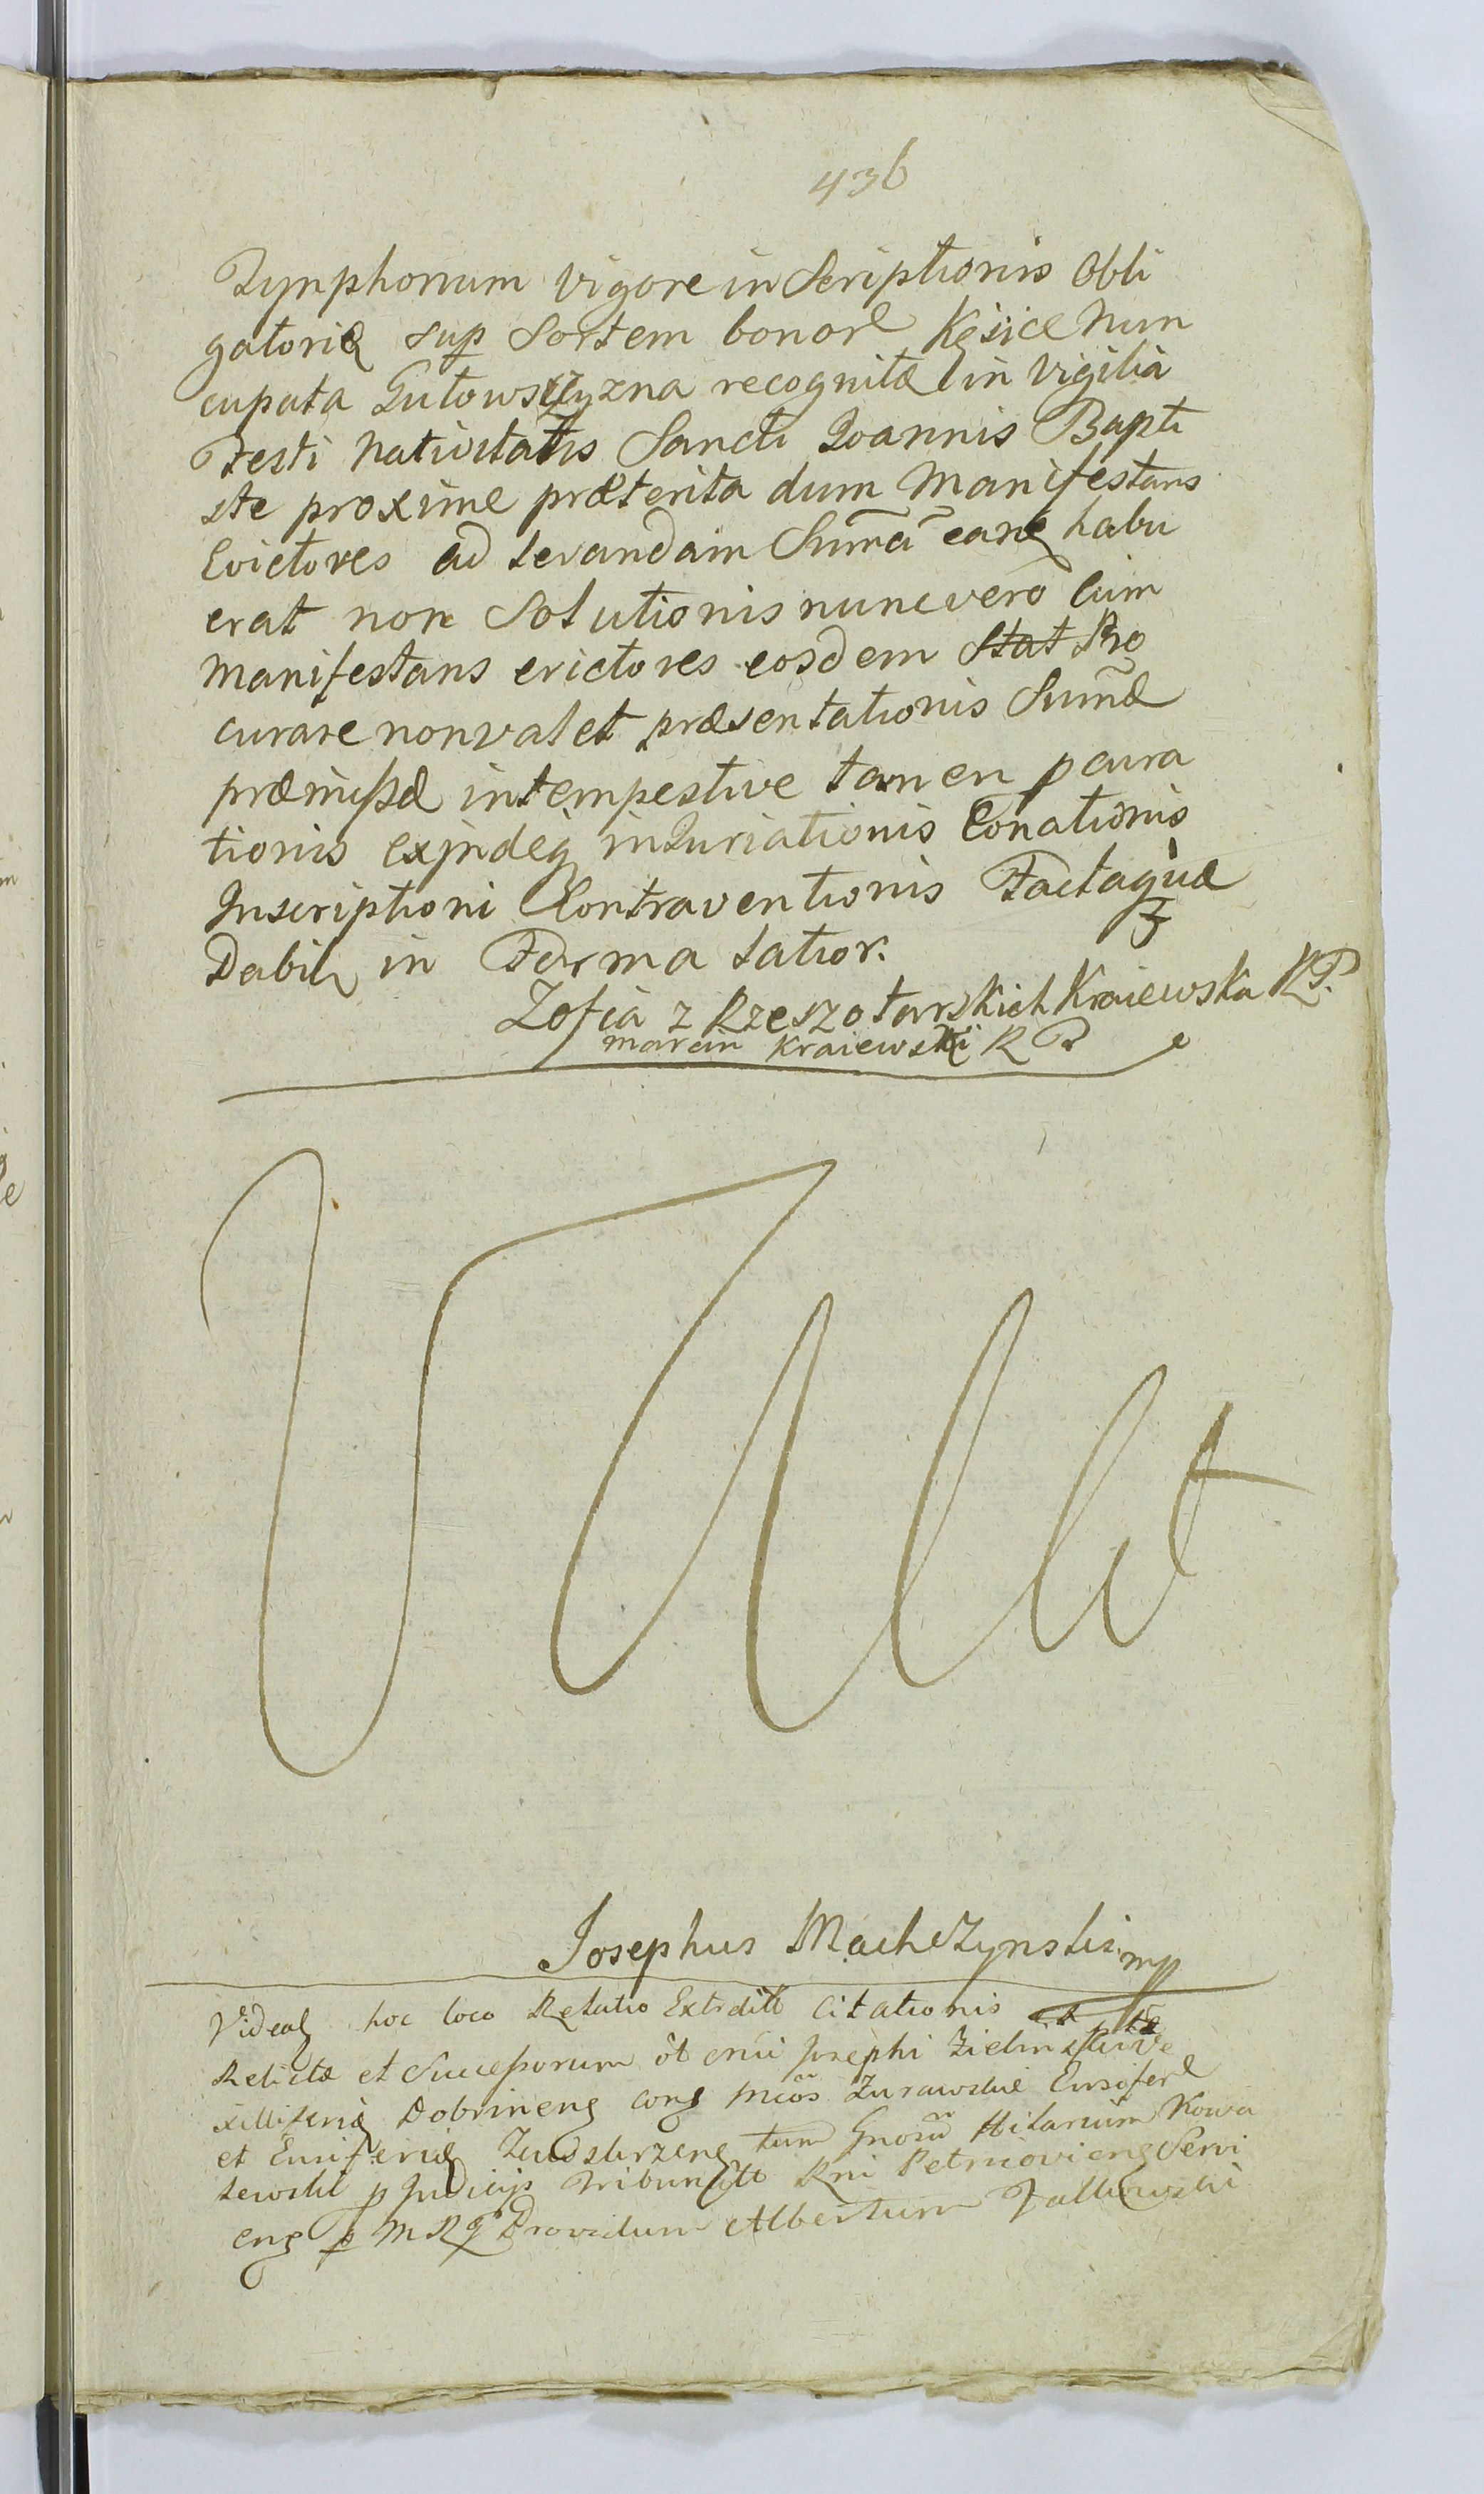 436
Tynphonum vigore inscriptionis obli
gatoriæ sup sortem bonorũ Kęsice nun
cupata Gutowszczyzna recognitæ in vigilia
Festi Nativitatis Sancti Joannis Bapti
ste proxime præterita dum Manifestans
Evictores ad levandam Sum̃a eanq habu
erat non Solutionis nunc vero cum
Manifestans evictores eosdem Stat Pro
curare non valet præsentationis Sum̃æ
præmissæ intempestive tamen paura
tionis exindeq injuriationis Conationis
Inscriptioni Contraventionis Factaquæ
Dabitq in Forma latior.
Zofia z Rzeszotarskich Kraiewska RP.
marcin Kraiewski RP
Josephus Machczynski mp
Videatq hoc loco Relatio Extraditæ citationis
Relictæ et Successorum ôt Josephi Zielinski Ve
xilliferiq Dobrineng cong Zurawskie Ensiferũ
et Ensiferiq tum Gnosũ Hilarium Kowa
lewski p Judicijs Tribunlitt Rni Petricovieng Servi
eng p M R Providum Albertum